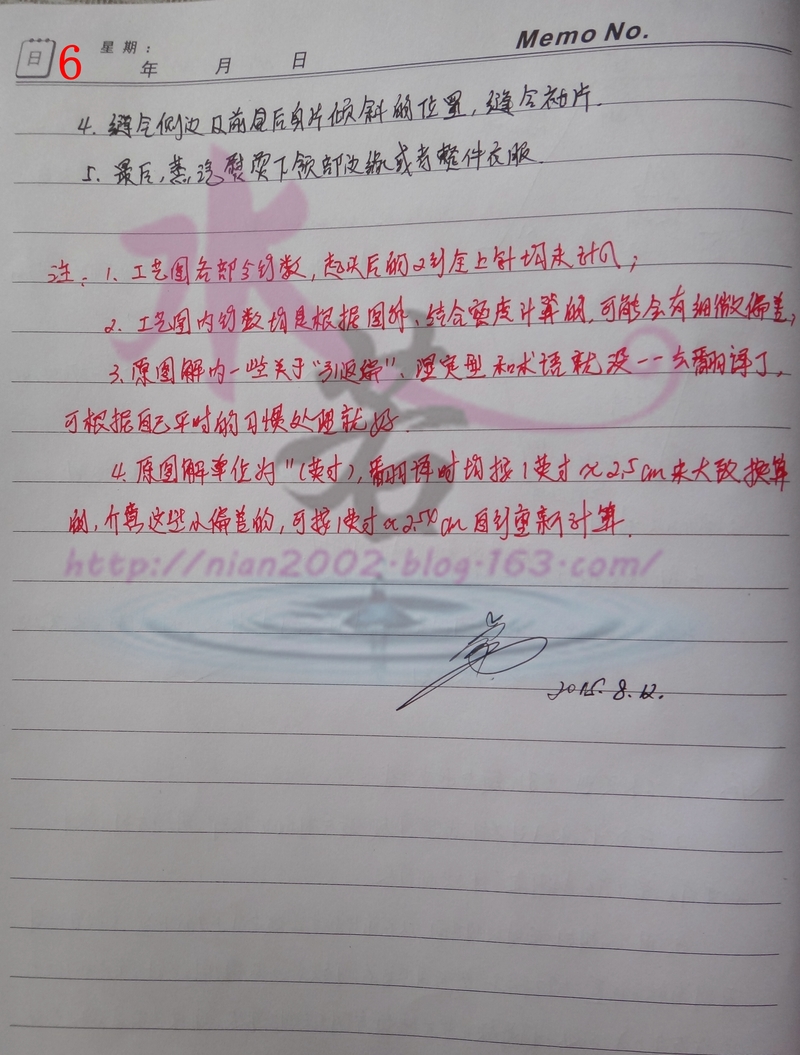 日 6 星期: 年 月 日 Memo No.
4. 缝合侧边及前身后身片倾斜的位置, 缝合袖片.
5. 最后, 蒸汽熨烫下领部边缘或者整件衣服.
注: 1. 工艺图各部分针数, 起头后的 上针均未计入;
2. 工艺图内针数均是根据图外、结合密度计算的, 可能会有细微偏差;
3. 原图解内一些关于“引返编”、湿定型和术语就没一一去翻译了,
可根据自己平时的习惯处理就好.
4. 原图解单位为"(英寸), 翻译时均按1英寸≈2.5cm来大致换算
的, 介意这些小偏差的, 可按1英寸≈2.54cm自到重新计算.
水若
http://nian2002.blog.163.com/
2015.8.12.